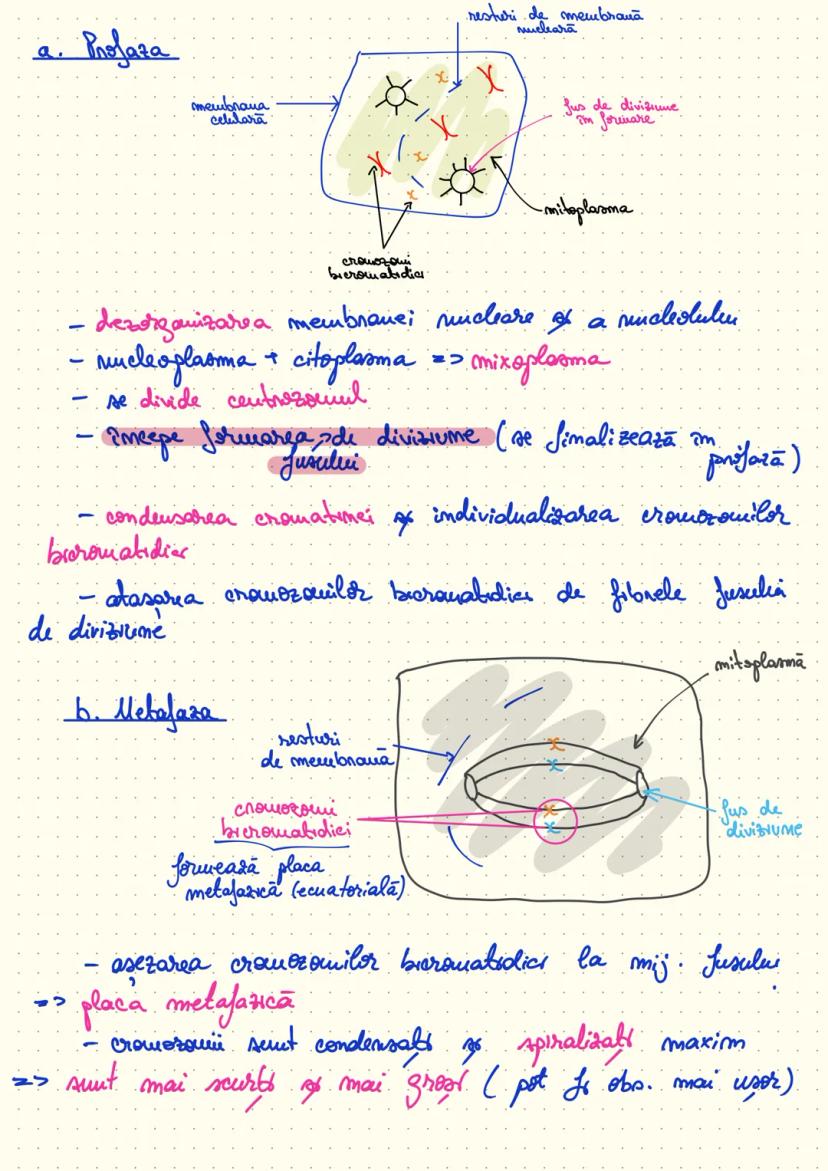 resturi de membrană
nucleară
a. Profaza
membrana
celulară
fus de diviziune
în formare
mitoplasma
cromozomi
bicromatidici
- dezorganizarea membranei nucleare și a nucleolului
- nucleoplasma + citoplasma => mixoplasma
- se divide centrozomul
- începe formarea de diviziune (se finalizează în
fusului
profază)
- condensarea cromatinei și individualizarea cromozomilor
bicromatidici
- atașarea cromozomilor bicromatidici de fibrele fusului
de diviziune
mitoplasmă
b. Metafaza
resturi
de membrană
cromozomi
bicromatidici
fus de
diviziune
formează placa
metafazică (ecuatorială)
- așezarea cromozomilor bicromatidici la mij. fusului
=> placa metafazică
- cromozomii sunt condensați și spiralizați maxim
=> sunt mai scurți și mai groși (pot fi obs. mai ușor)